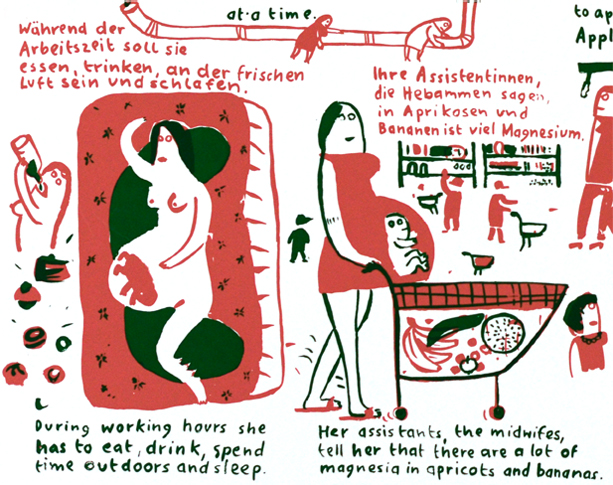 at a time.
Während der
Arbeitszeit soll sie
essen, trinken, an der frischen
Luft sein und schlafen.
to ap
Appl
Ihre Assistentinnen,
die Hebammen sagen,
in Aprikosen und
Bananen ist viel Magnesium.
During working hours she
has to eat, drink, spend
time outdoors and sleep.
Her assistants, the midwifes,
tell her that there are a lot of
magnesia in apricots and bananas.